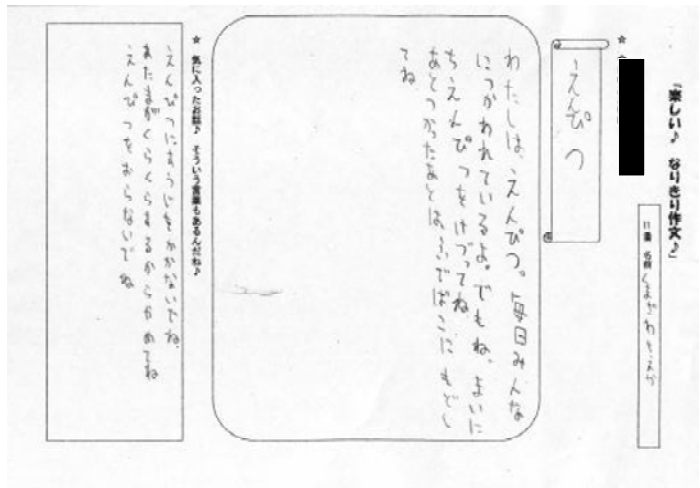 「楽しい♪ なりきり作文♪」
11番 名前
☆
えんぴつ
わたしは、えんぴつ。毎日みんな
につかわれているよ。でもね、まいに
ちえんぴつをけずってね
あとつかったあとは、ふでばこにもどし
てね
☆ 気に入ったお話♪ そういう言葉もあるんだね♪
えんぴつにすうじをかかないでね、
あたまがくらくらするからやめてね
えんぴつをおらないでね